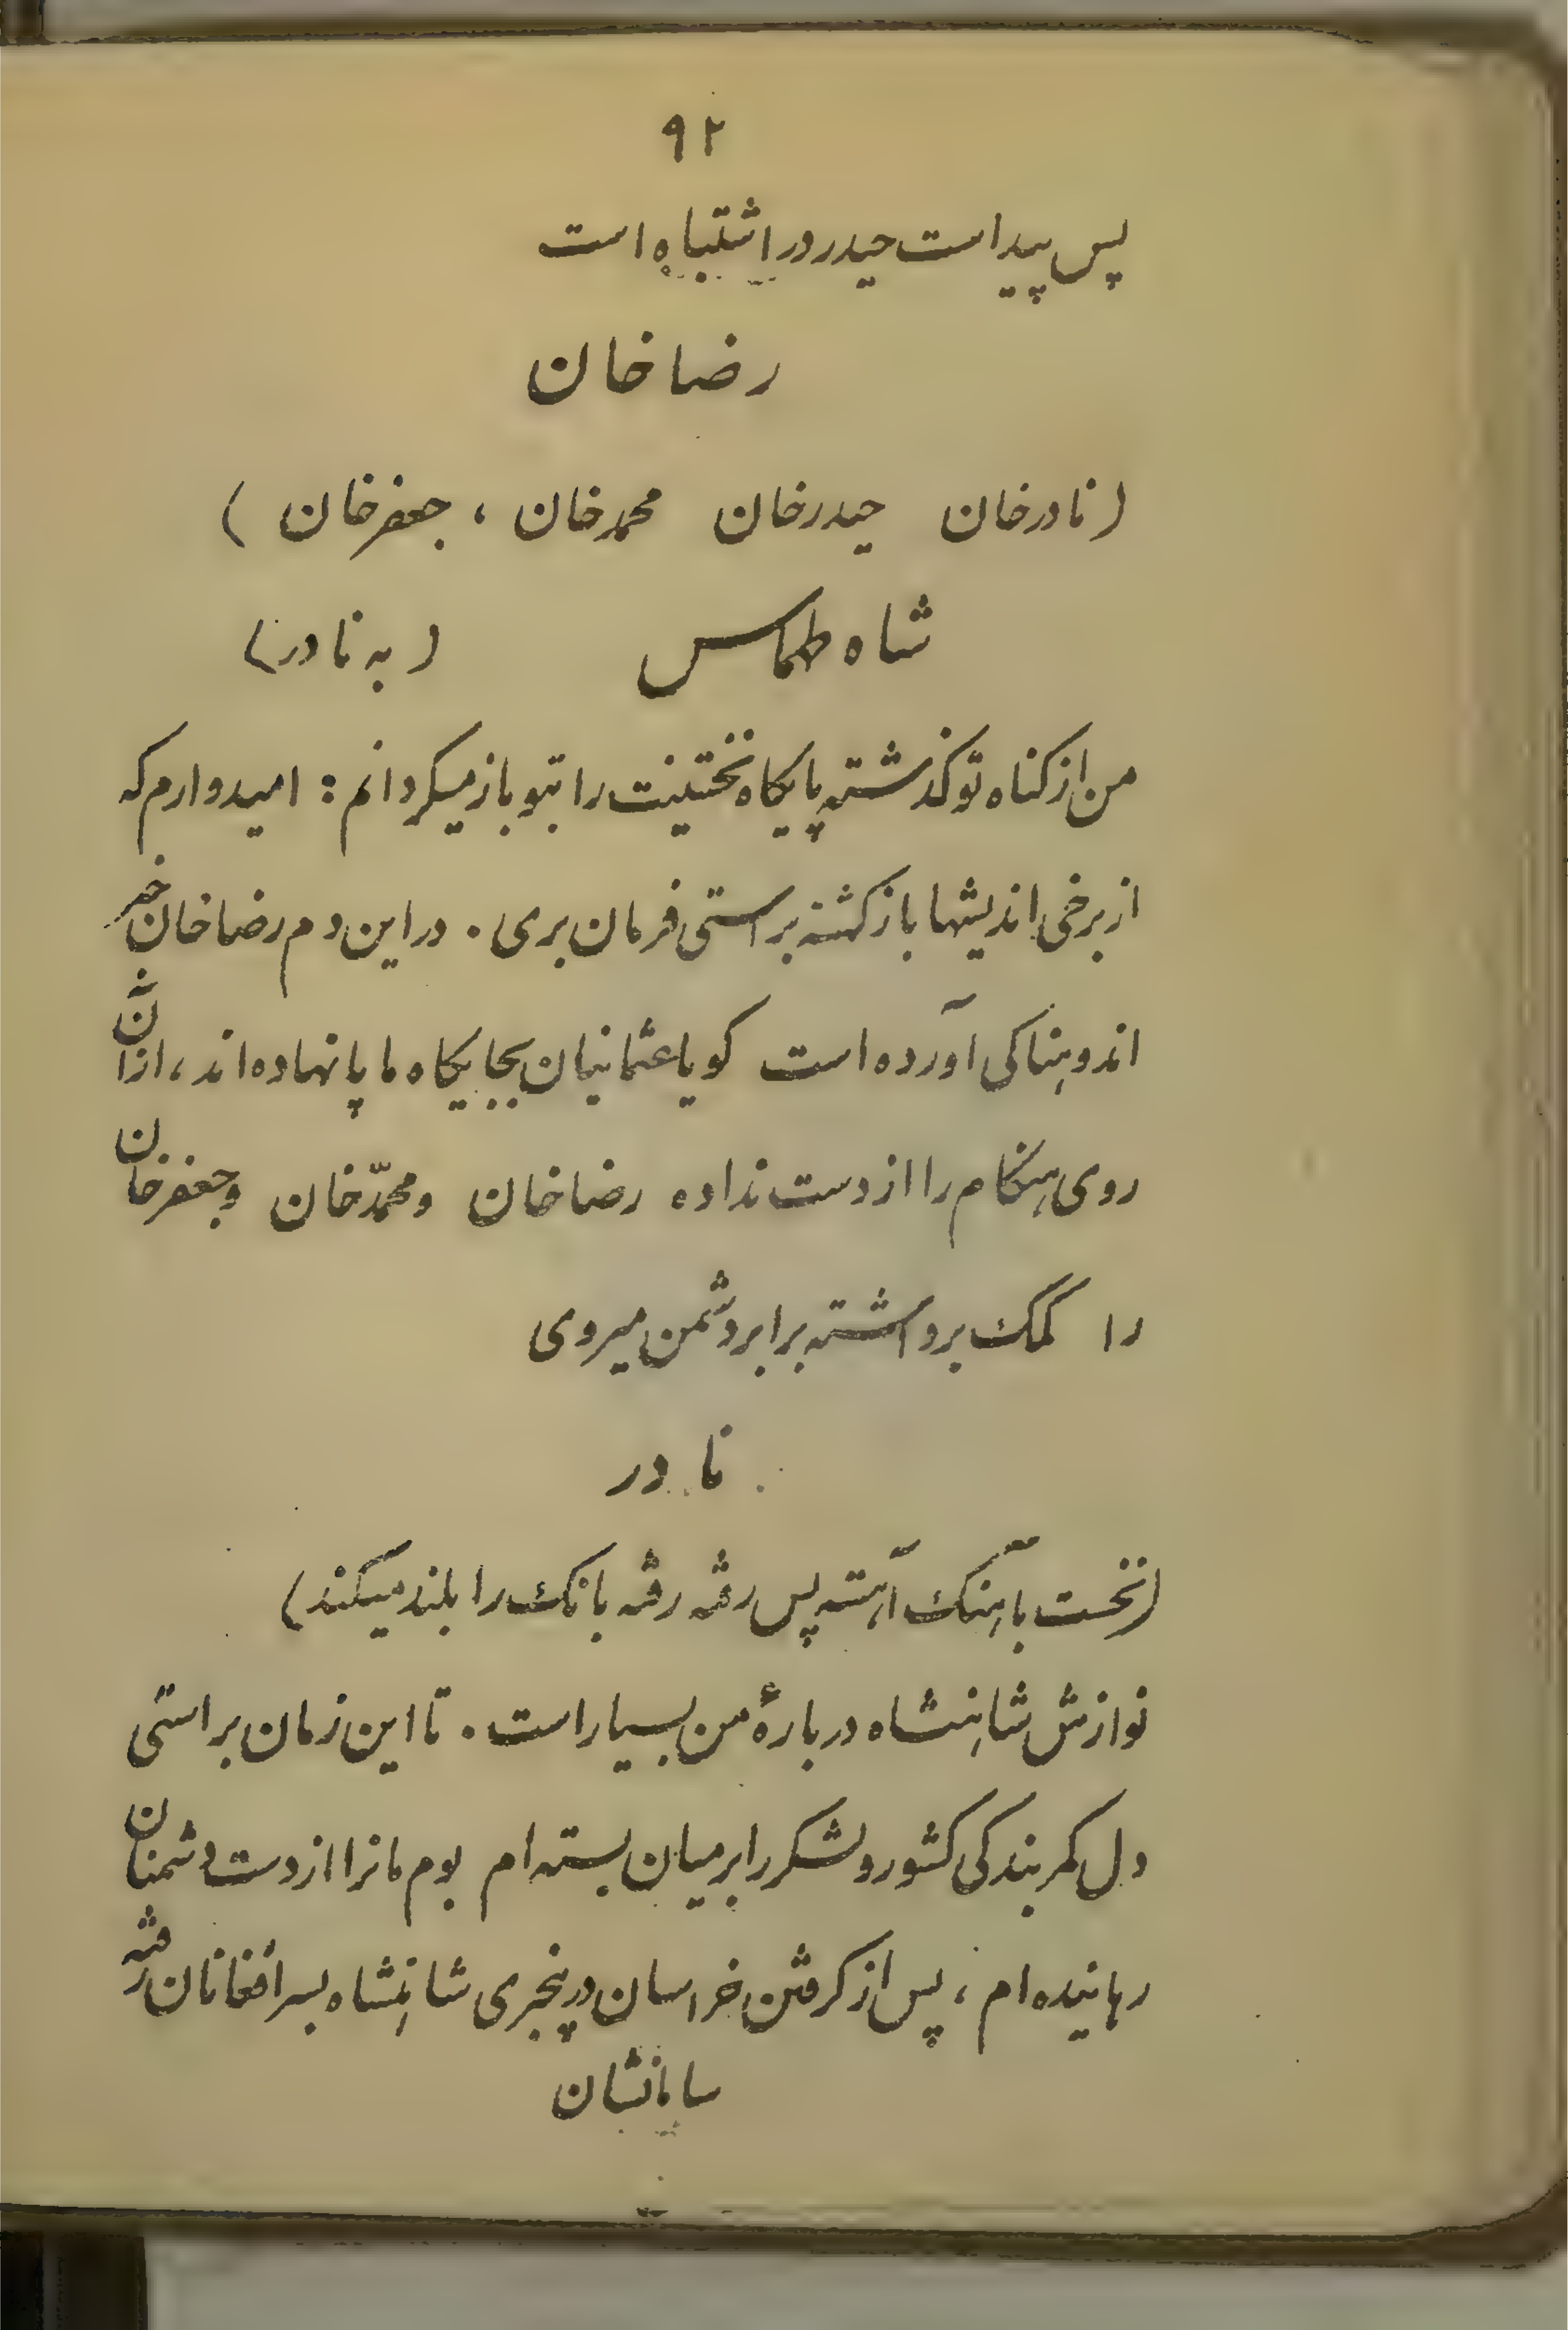 ۹۲
پس پیداست حیدر در اشتباه است
رضا خان
(نادرخان حیدرخان محمدخان ، جعفرخان )
شاه طهماسب (به نادر)
من از کناه تو کذشته پایکاه نخستینت را بتو باز میکردانم : امیدوارم که
از برخی اندیشها باز کشته براستی فرمان بری . در این دم رضاخان خبر
اندوهناکی آورده است کویا عثمانیان بجایکاه ما پا نهاده‌اند ، از آن
روی هنکام را از دست نداده رضاخان و محمّدخان و جعفرخان
را کمک برداشته برابر دشمن میروی
نادر
(نخست باآهنک آهسته پس رفته رفته بانک را بلند میکند)
نوازش شاهنشاه دربارهٔ من بسیار است . تا این زمان براستی
دل کمر بندکی کشور و لشکر را بر میان بسته‌ام بوم مانرا از دست دشمنان
رهانیده‌ام ، پس از کرفتن خراسان در پنجری شاهنشاه بسر افغانان رفته
سامانشان